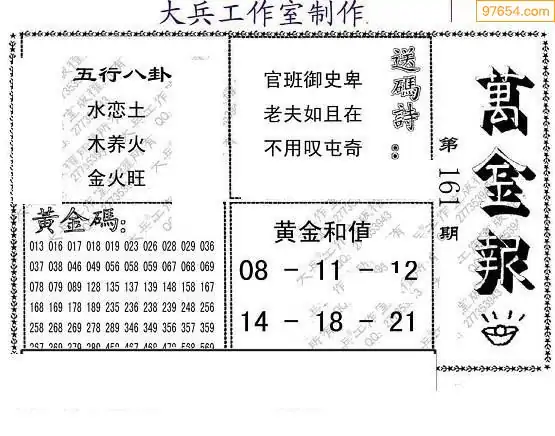 大兵工作室制作
97654.com
五行八卦
水恋土
木养火
金火旺
官班御史卑
老夫如且在
不用叹屯奇
送碼詩：
萬金報
第161期
黃金碼：
013 016 017 018 019 023 026 028 029 036
037 038 046 049 056 058 059 067 068 069
078 079 089 128 135 137 139 148 158 167
168 169 178 189 235 236 238 239 248 256
258 268 278 289 346 349 356 357 359
黄金和值
08 - 11 - 12
14 - 18 - 21